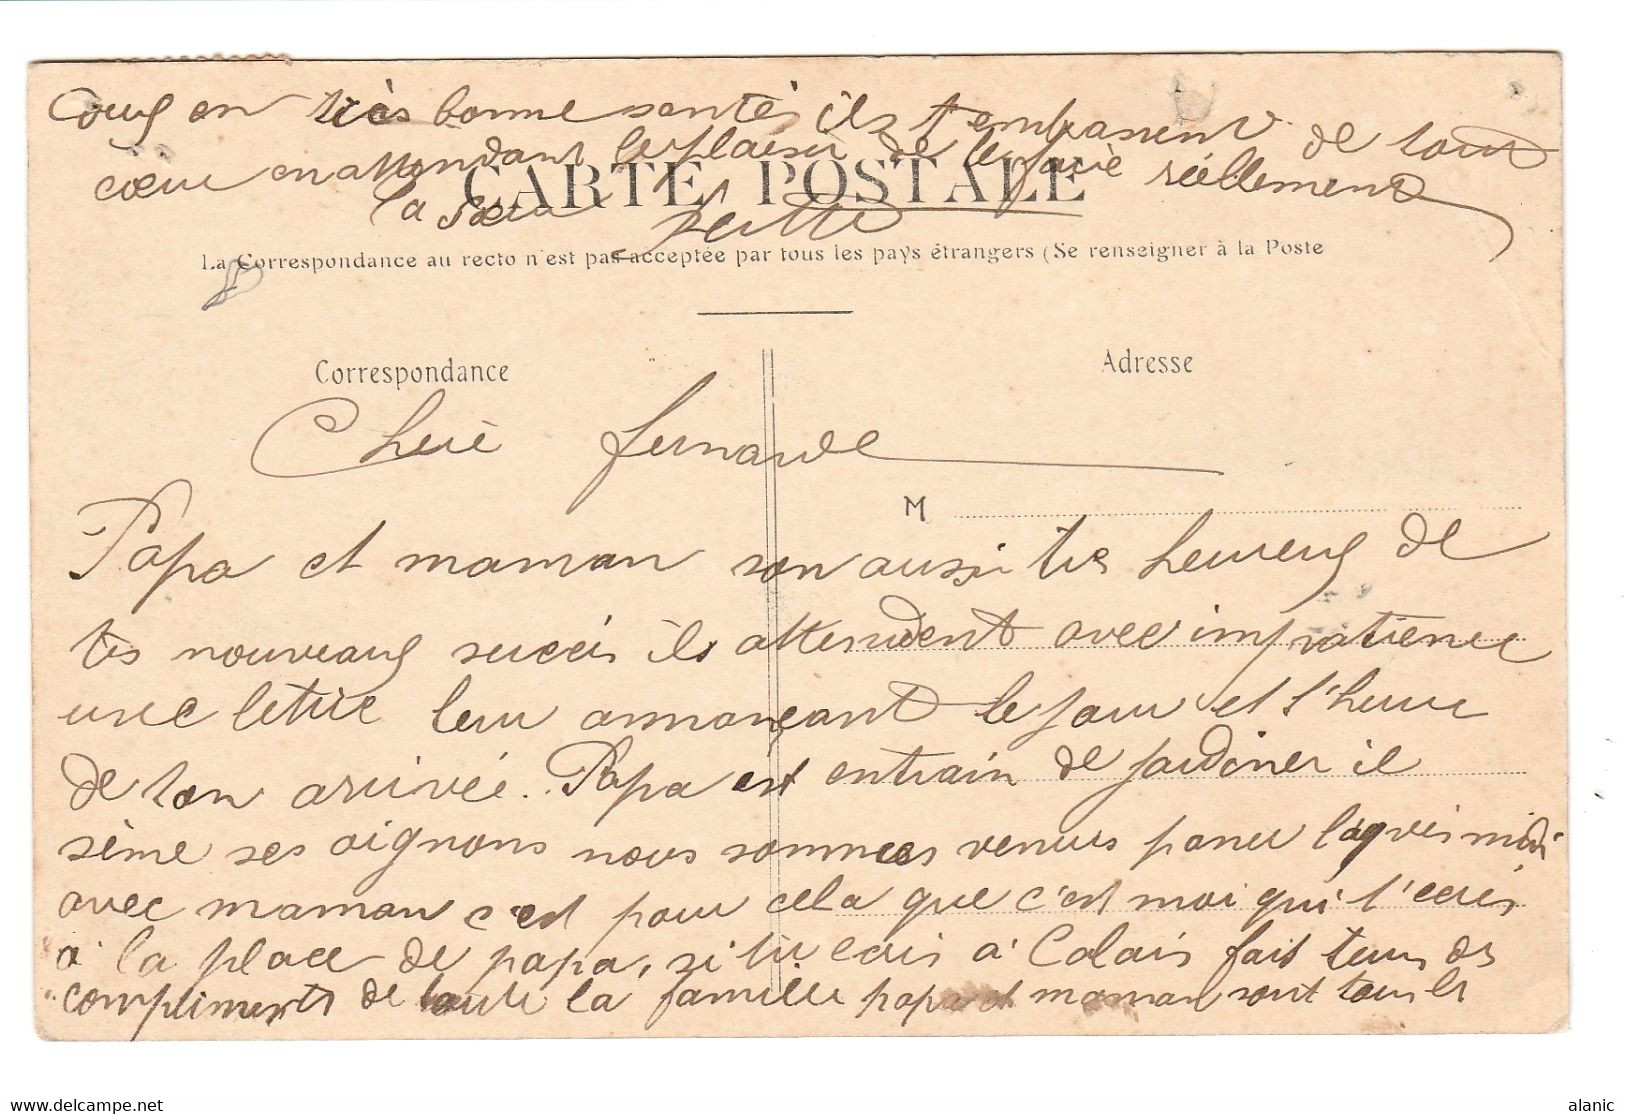 Chère fernande
Papa et maman son aussi très heureux de
tes nouveaux succès ils attendent avec impatience
une lettre leur annonçant le jour et l'heure
de ton arrivée. Papa est entrain de jardiner il
sème ses oignons nous sommees venus passer l'après midi
avec maman c'est pour cela que c'est moi qui t'ecris
à la place de papa, si tu ecris à Calais fait leurs des
compliments de toute la famille papa et maman sont tous les
deux en très bonne santé ils t'embrassent de tout
coeur en attendant le plaisir de le faire réellement
Ta Soeur
CARTE POSTALE
La Correspondance au recto n'est pas acceptée par tous les pays étrangers (Se renseigner à la Poste
Correspondance
Adresse
M
www.delcampe.net
alanic